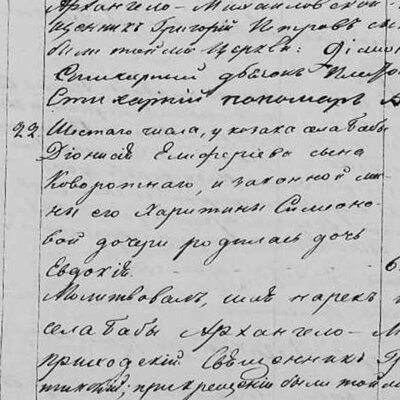 Архангело-Михаиловской
щенникъ Григорій Петровъ
были той же Церкви:
Стихарный дьячокъ
Стихарній пономарь
22. Шестаго числа, у козака села Бабы
Діонисія Елиферіева сына
Коворотнаго, и законной же-
ны его Харитины Симионо-
вой дочери родилась дочь
Евдокія.
Молитвовалъ, имя нарекъ
села Бабы Архангело-М
приходскій Священникъ Г
при крещеніи были той